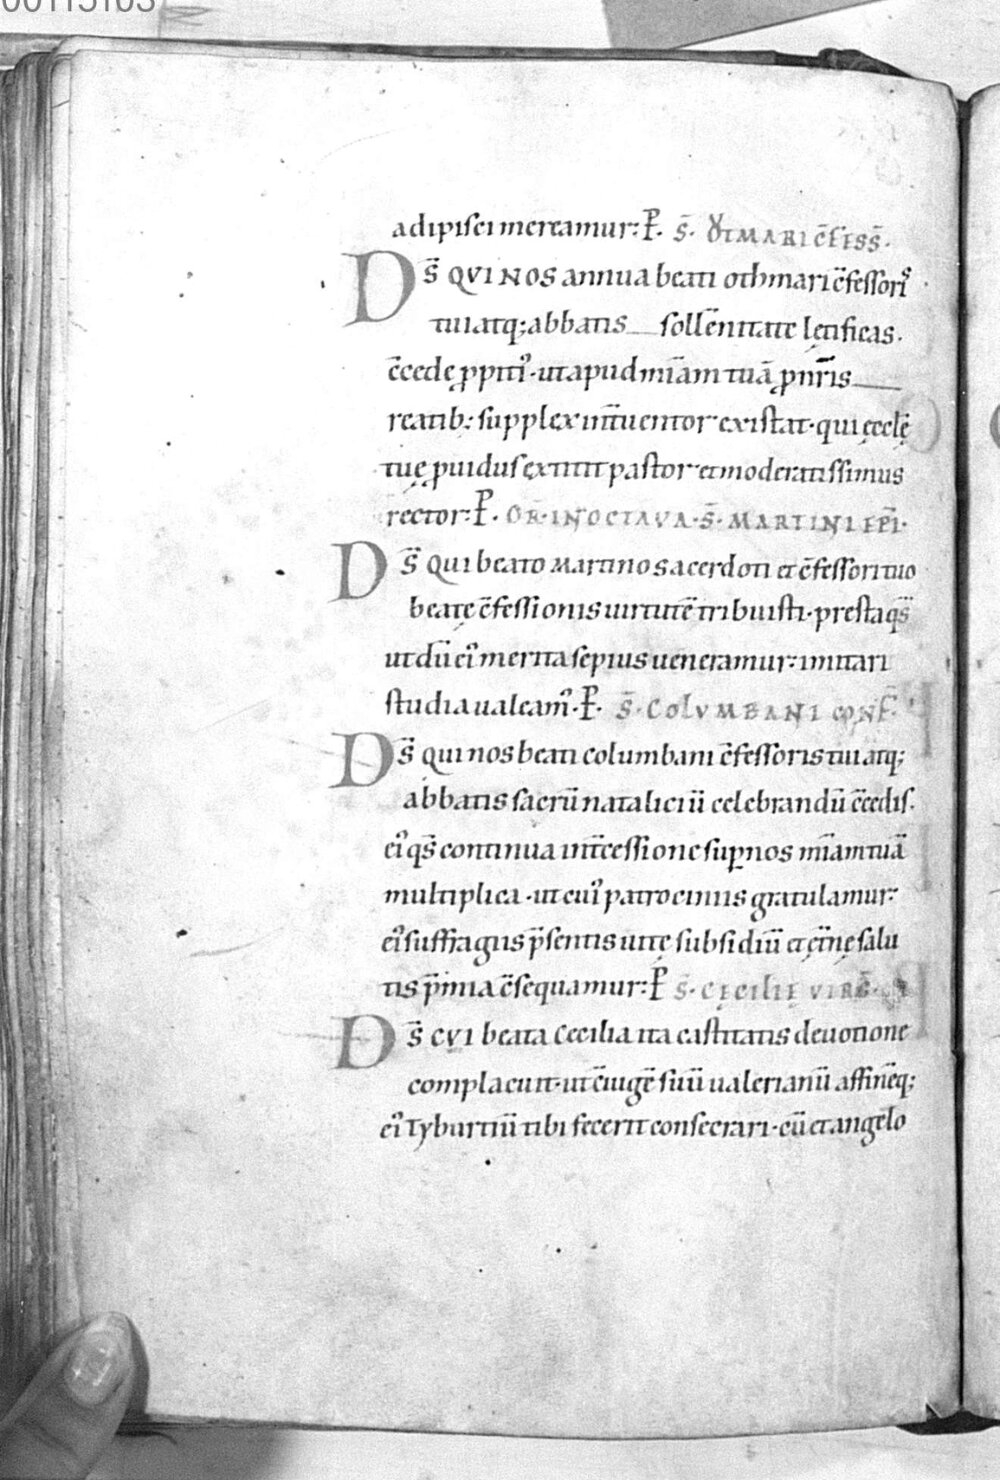 adipisci mereamur: P̄. S̄. OTMARI C̄FESS̄.
DS̄ QVI NOS annua beati othmari c̄fessoris
tui atq; abbatis sollēnitate lętificas.
c̄cede ꝓpitiꝰ· ut apud mīam tuā ꝓ nr̄is
reatib; supplex int̄uentor existat· qui ęcclę
tuę ꝓuidus extitit pastor et moderatissimus
rector: P̄. OR̄· IN OCTAVA· S̄· MARTINI EP̄I·
DS̄ Qui beato Martino sacerdoti et c̄fessori tuo
beatę c̄fessionis uirtutē tribuisti· presta qs̄
ut dū eiꝰ merita sepius ueneramur: imitari
studia ualeamꝰ· P̄. S̄· COLVMBANI CONF̄·
DS̄ qui nos beati columbani c̄fessoris tui atq;
abbatis sacrū nataliciū celebrandū c̄cedis.
eiꝰ qs̄ continua int̄cessione suꝑ nos mīam tuā
multiplica· ut cuiꝰ patrociniis gratulamur:
eiꝰ suffragiis p̄sentis uitę subsidiū et ęt̄nę salu
tis p̄mia c̄sequamur: P̄ S̄· CĘCILIĘ VIRḠ·
DS̄ CVI beata Cecilia ita castitatis deuotione
complacuit· ut c̄iugē suū ualerianū affinēq;
eiꝰ Tyburtiū tibi fecerit consecrari· cū et angelo